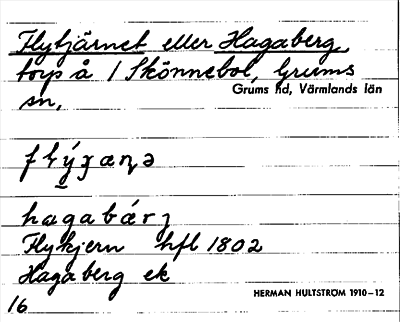 Flytjärnet eller Hagaberg,
torp å 1 Skönnebol, Grums
sn, Grums hd, Värmlands län
hagabárʒ
Flykjern hfl 1802
Hagaberg ek
16 HERMAN HULTSTRÖM 1910–12